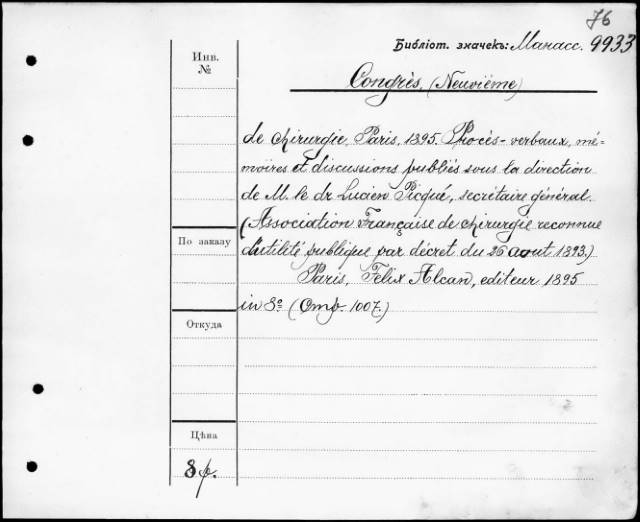 76
Библіот. значекъ: Манасс. 9933
Инв.
№
Congrès, (Neuvième)
de chirurgie, Paris, 1895. Procès-verbaux, mé=
moires et discussions publiés sous la direction
de M. le dr Lucien Picqué, secrétaire général.
(Association Française de chirurgie reconnue
d'utilité publique par décret du 26 aout 1893.)
Paris, Felix Alcan, editeur 1895
in 8º (Стр. 1007.)
По заказу
Откуда
Цѣна
8 р.